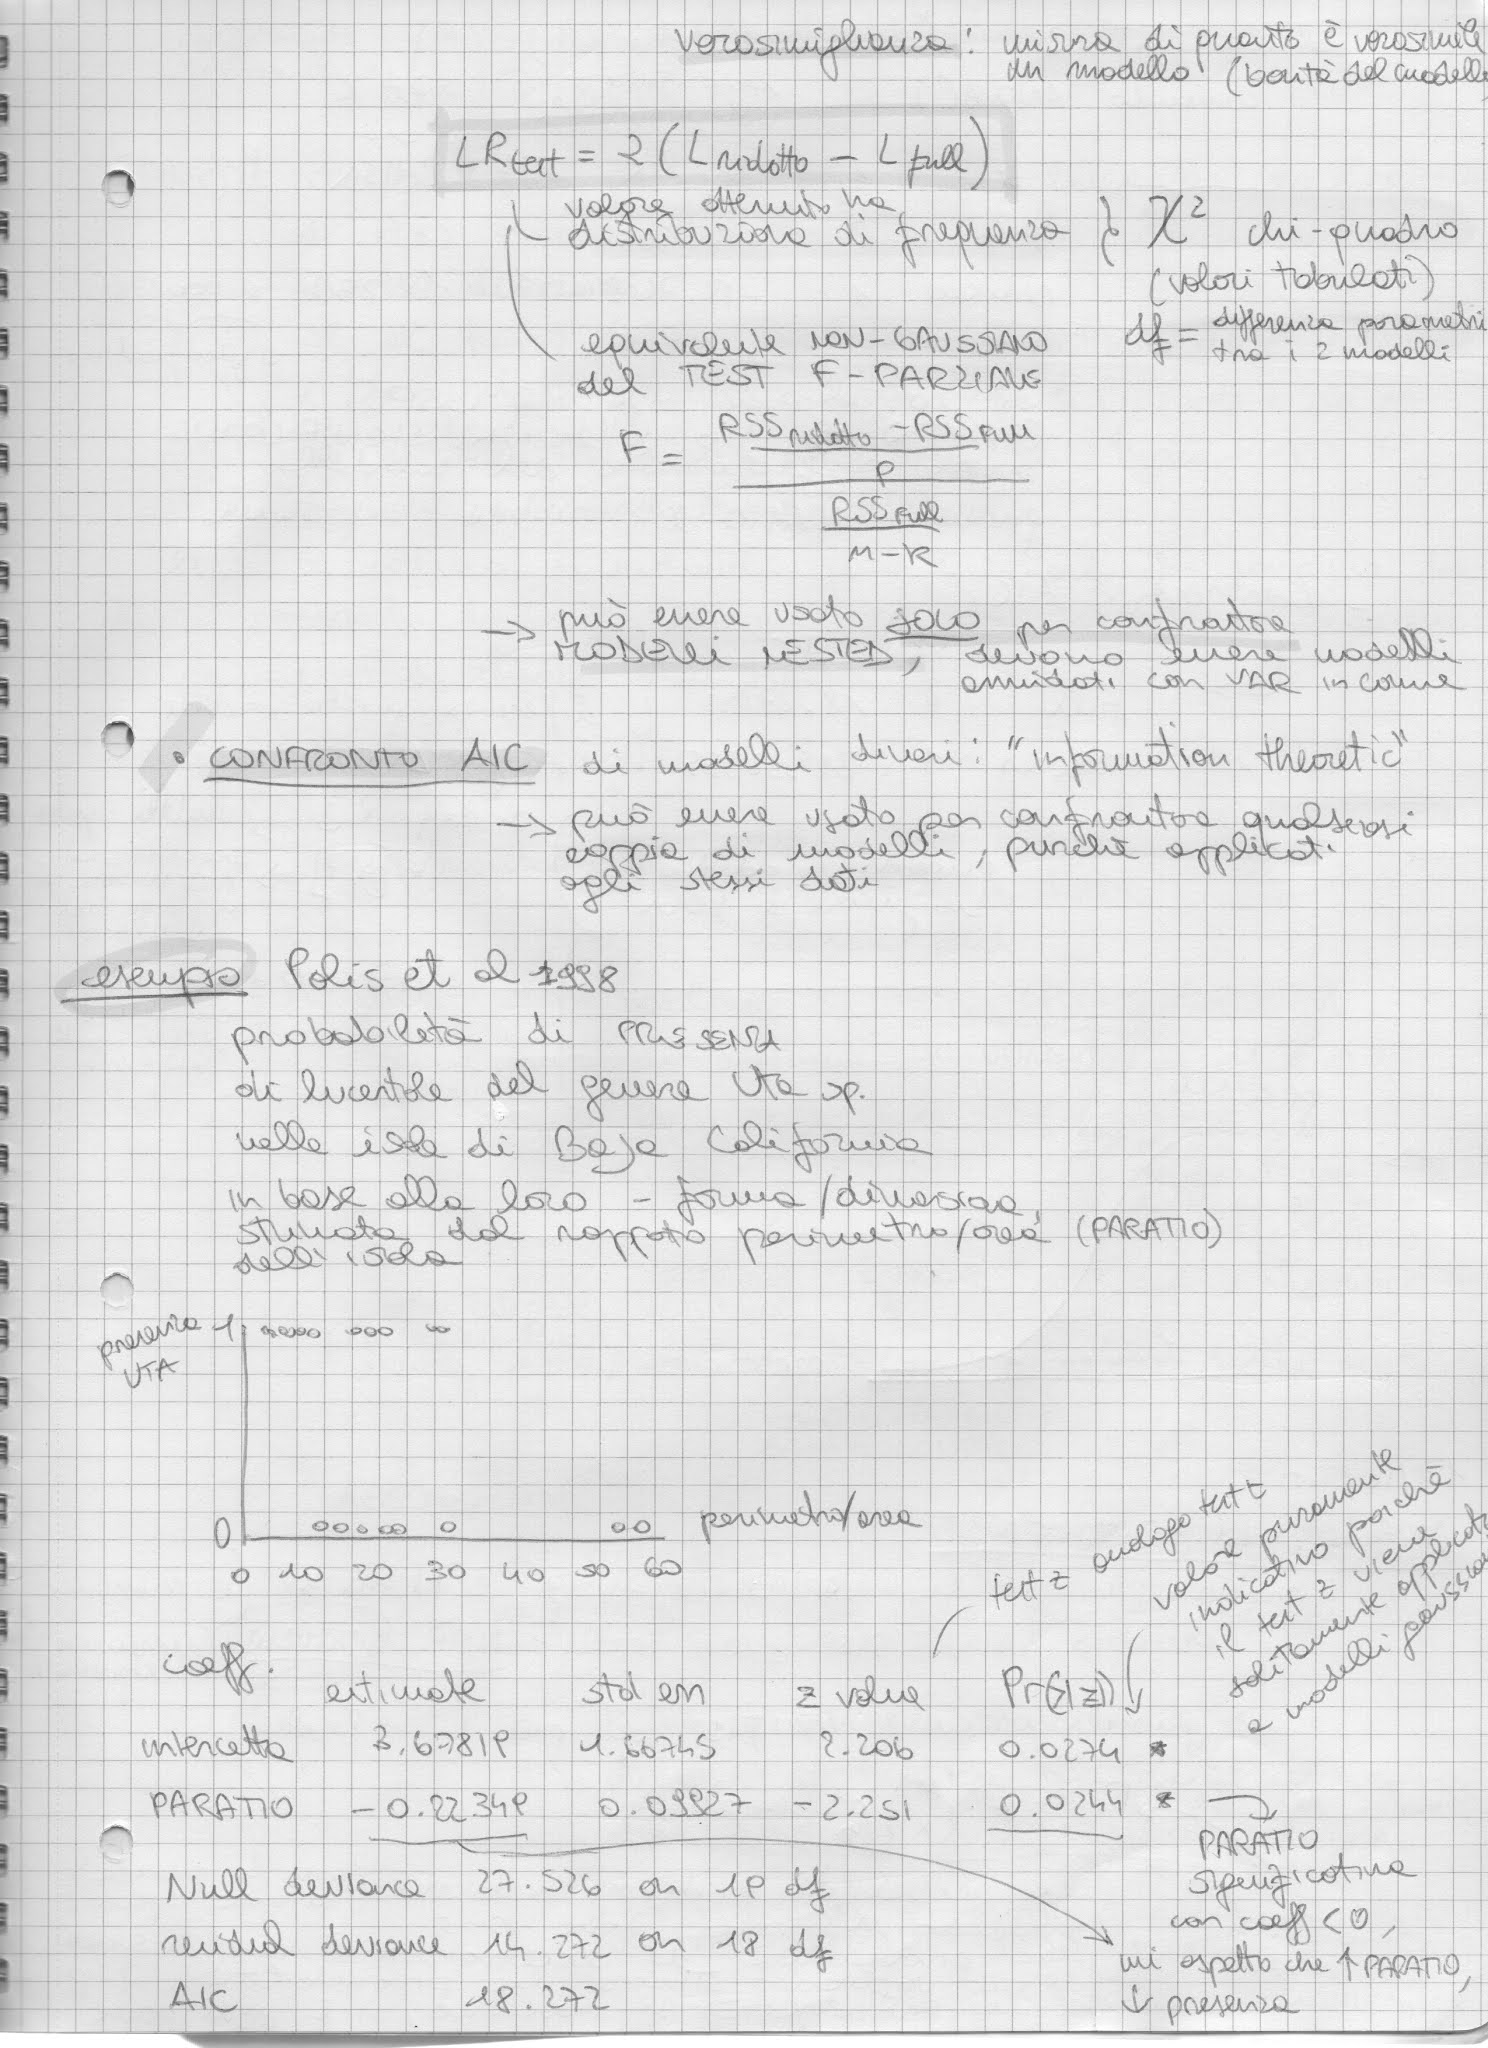 verosimiglianza: misura di quanto è verosimile
un modello (bontà del modello)
LRtest = 2 (Lridotto – Lfull)
valore ottenuto ha
distribuzione di frequenza } χ² chi-quadro
(valori tabulati)
df = differenza parametri
tra i 2 modelli
equivalente NON-GAUSSIANO
del TEST F-PARZIALE
F = RSSridotto – RSSFull
P
RSSFull
n – K
→ può essere usato SOLO per confrontare
MODELLI NESTED, devono essere modelli
annidati con VAR in comune
• CONFRONTO AIC di modelli diversi: "information theoretic"
→ può essere usato per confrontare qualsiasi
coppia di modelli, purché applicati
agli stessi dati
esempio Polis et al 1998
probabilità di PRESENZA
di lucertole del genere Uta sp.
nelle isole di Baja California
in base alla loro – forma/dimensione,
stimata dal rapporto perimetro/area (PARATIO)
dell'isola
presenza
UTA
1
0
perimetro/area
0 10 20 30 40 50 60
test z analogo test t
valore puramente
indicativo poiché
il test z viene
solitamente applicato
a modelli gaussiani
coeff.
estimate std err z value Pr(>|z|)
intercetta 3.67819 1.66745 2.206 0.0274 *
PARATIO –0.22349 0.09927 –2.251 0.0244 *
PARATIO
significativa
con coeff < 0,
mi aspetto che ↑ PARATIO,
↓ presenza
Null deviance 27.526 on 19 df
residual deviance 14.272 on 18 df
AIC 18.272